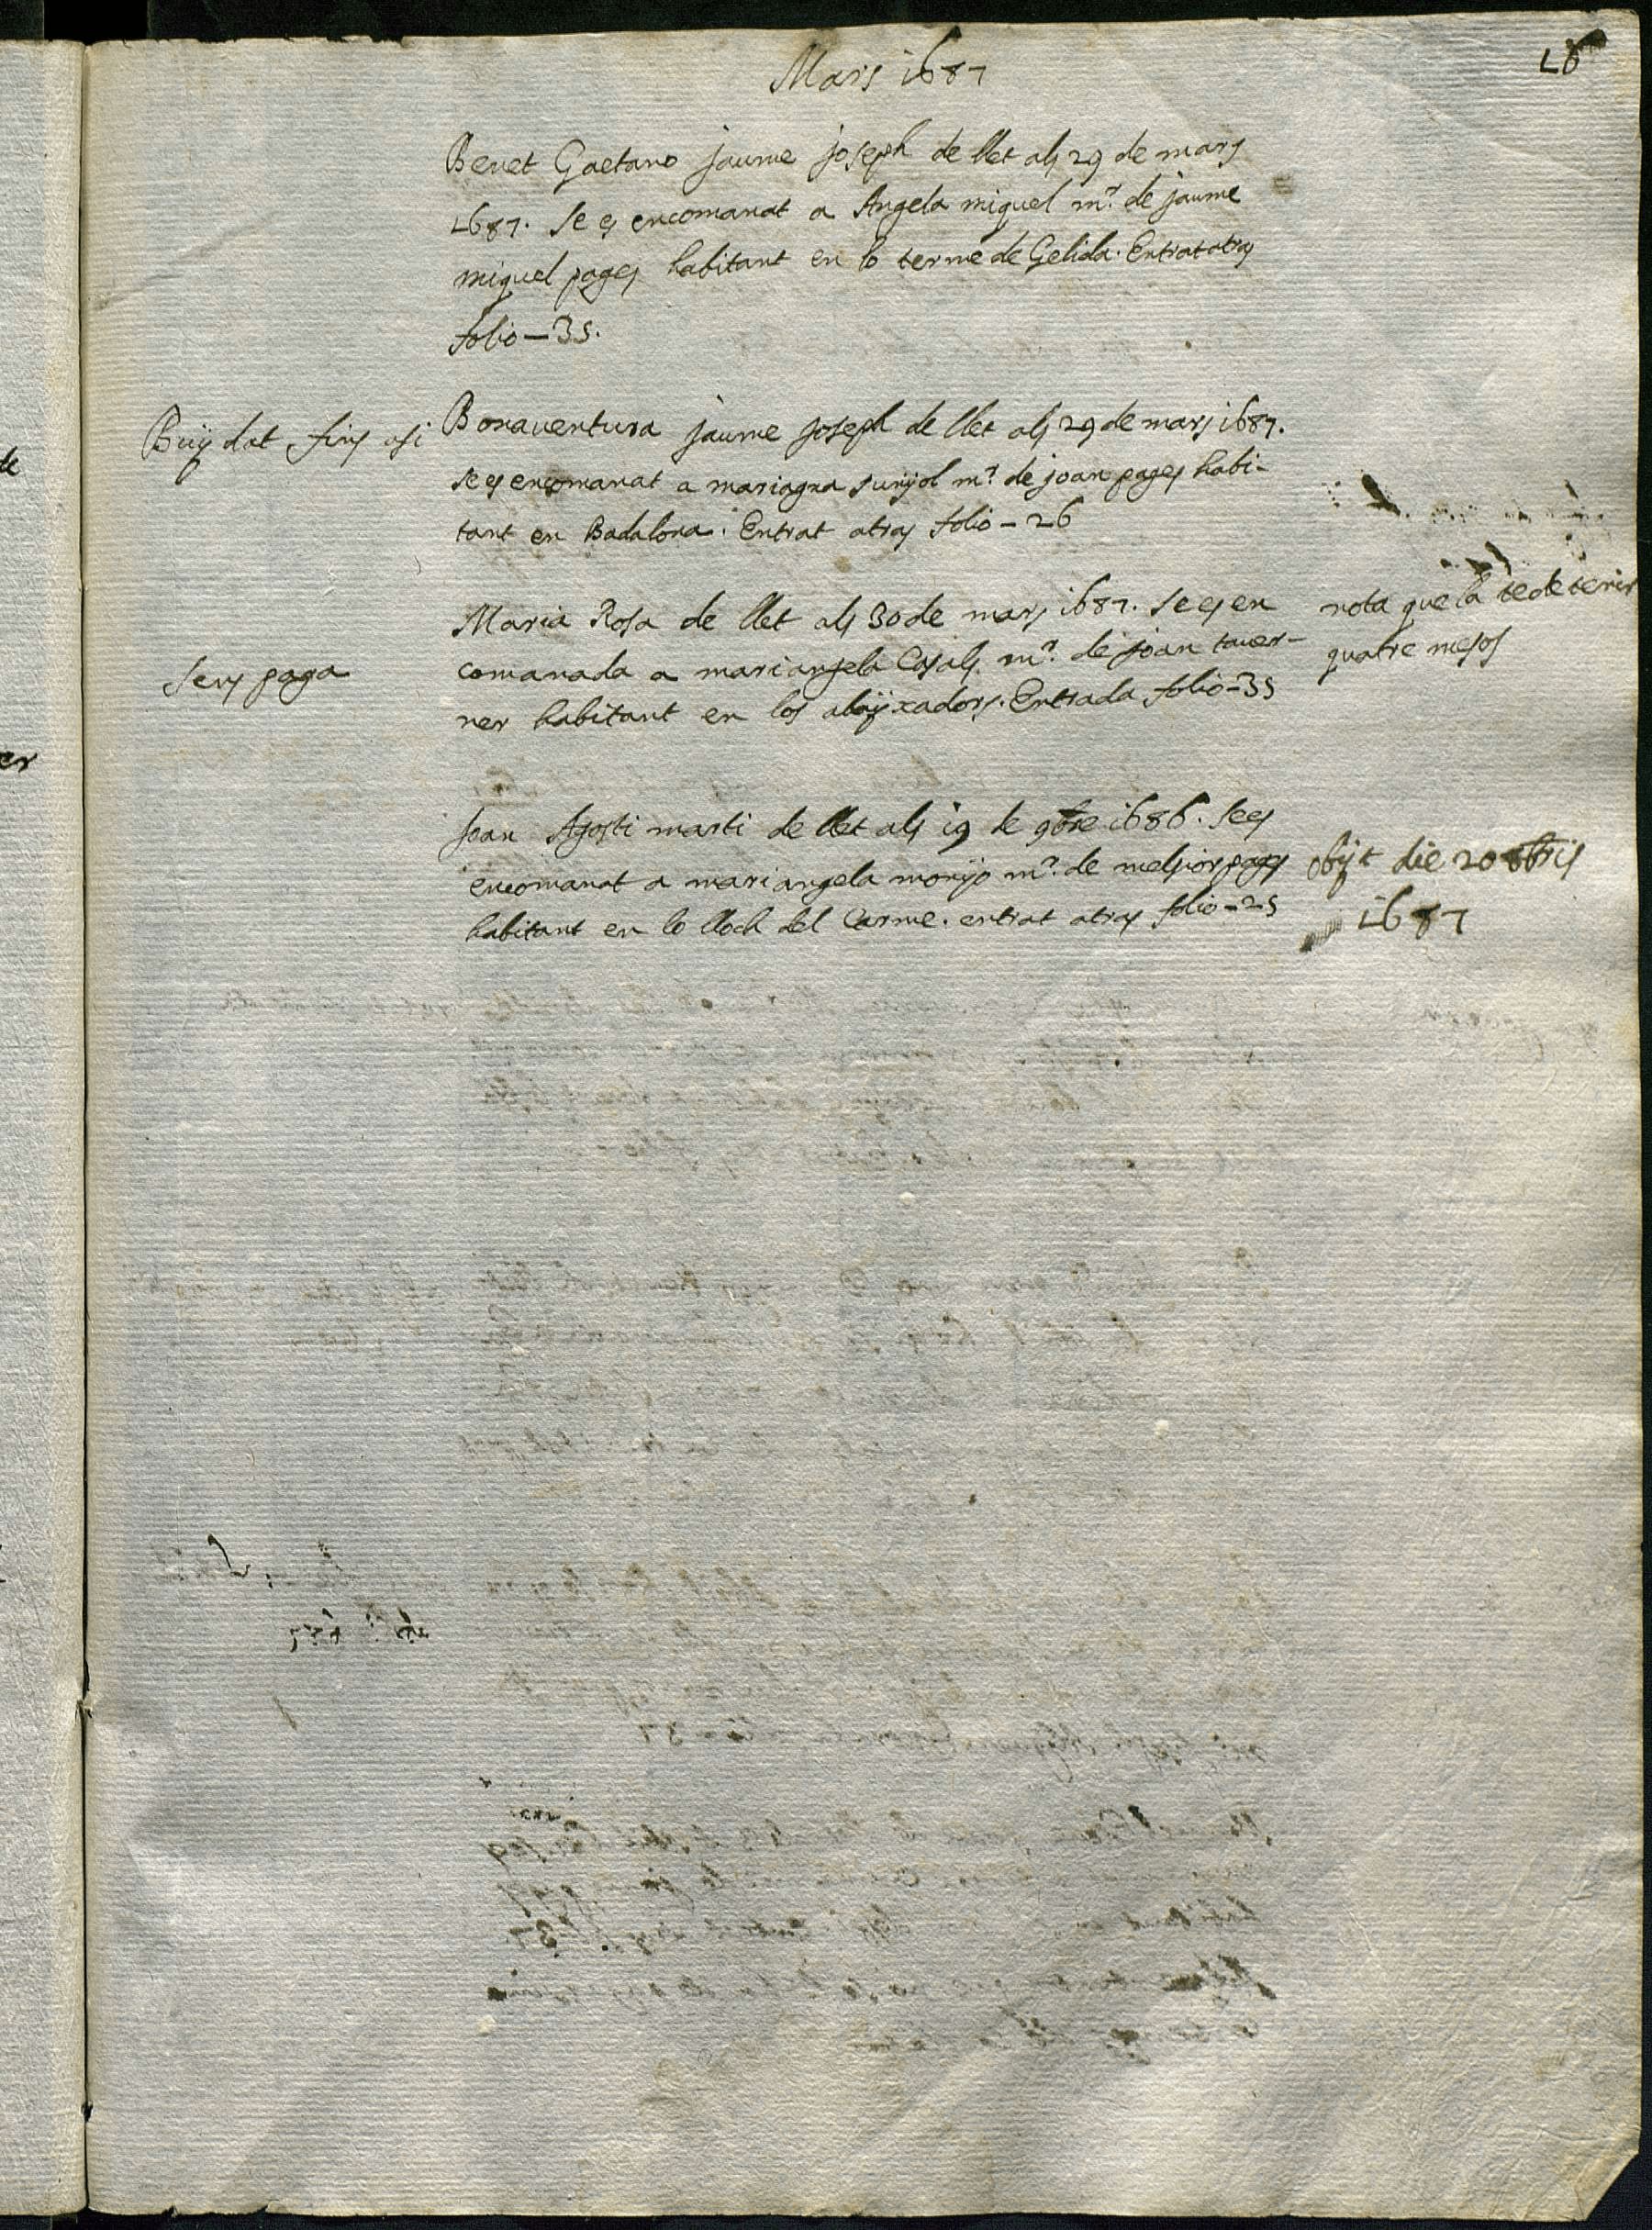 Mars 1687
26
Benet Gaetano jaume joseph de llet als 29 de mars
1687. Se es encomanat a Angela miquel mr. de jaume
miquel pages habitant en lo terme de Gelida. Entrat atras
folio - 35.
Buydat fins asi
Bonaventura jaume joseph de llet als 29 de mars 1687.
se es encomanat a mariagna sunyol mr. de joan pages habi-
tant en Badalona. Entrat atras folio - 26
Maria Rosa de llet als 30 de mars 1687. se es en
comanada a mariangela Casals mr. de joan taver-
ner habitant en los abayxadors. Entrada folio - 35
sens paga
nota que la te de tenir
quatre mesos
Joan Agosti marti de llet als 19 de 9bre 1686. se es
encomanat a mariangela monjo mr. de melsior pages
habitant en lo lloch del Carme. entrat atras folio - 25
obijt die 20 abris
1687